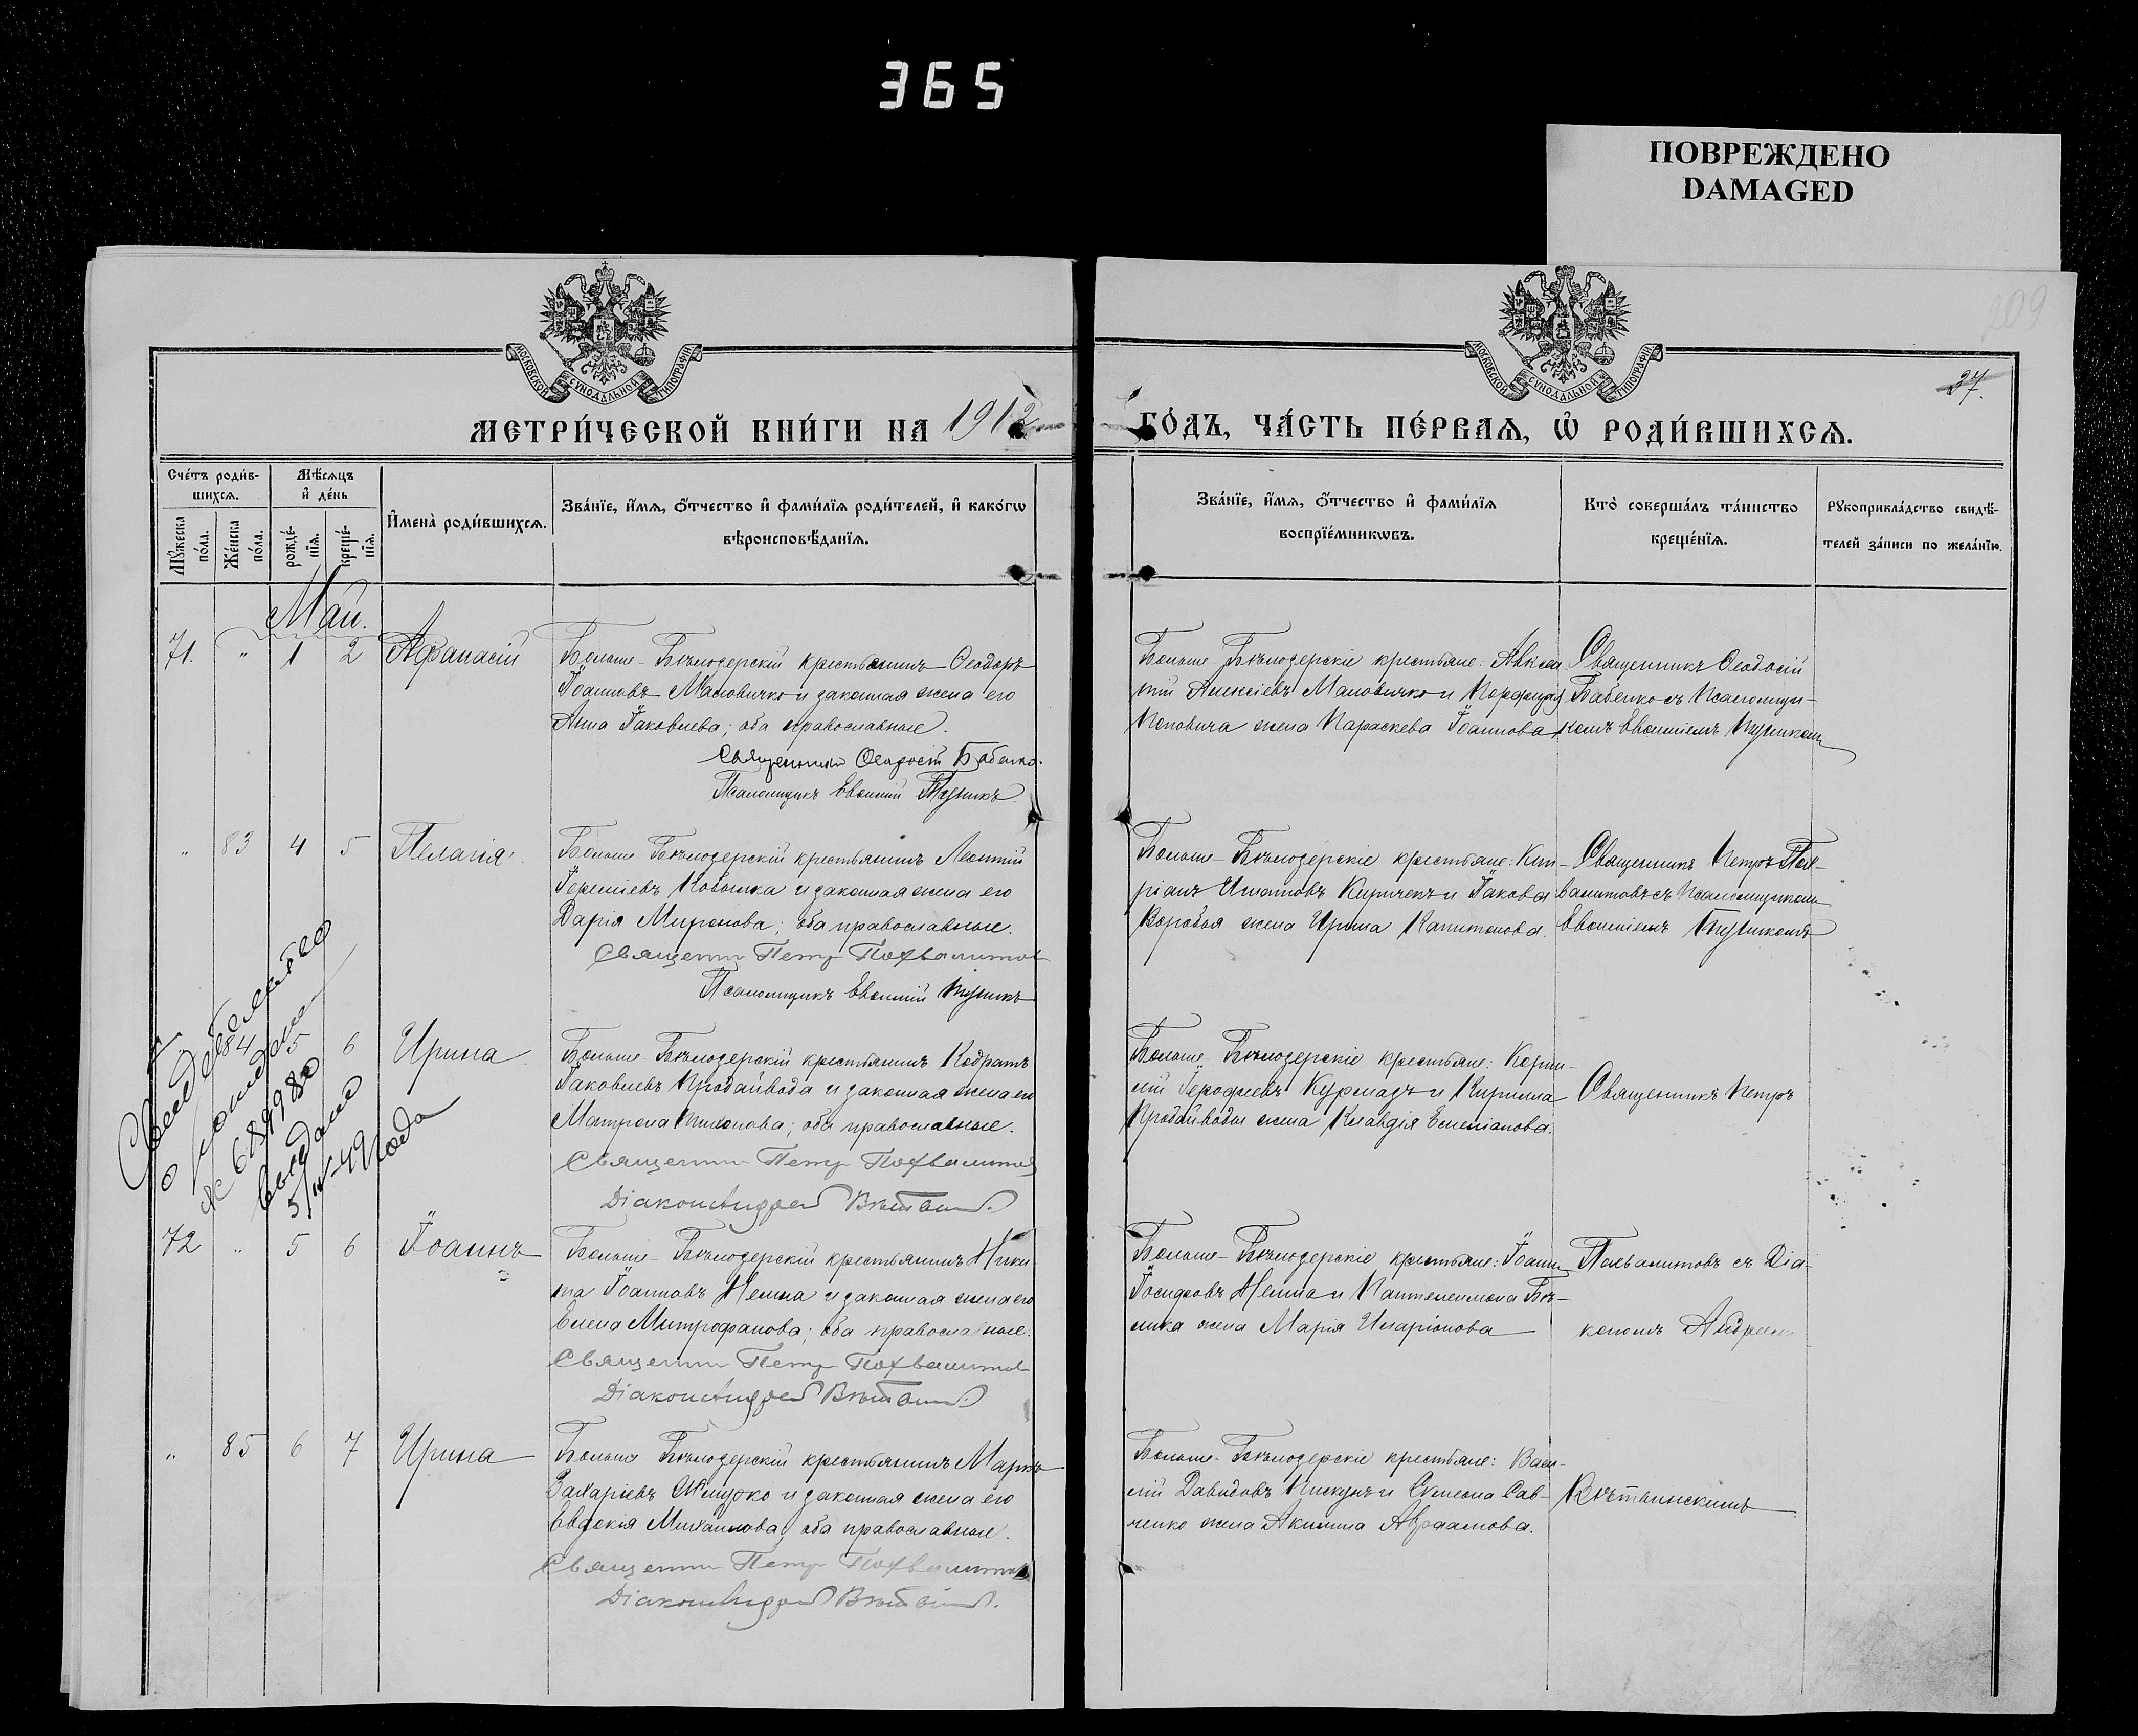 365
ПОВРЕЖДЕНО
DAMAGED
209
37.
МОСКОВСКОЙ СѴНОДАЛЬНОЙ ТИПОГРАФІИ
МОСКОВСКОЙ СѴНОДАЛЬНОЙ ТИПОГРАФІИ
МЕТРИ́ЧЕСКОЙ КНИ́ГИ НА 1912
ГО́ДЪ, ЧА́СТЬ ПЕ́РВАѦ, Ѡ҆ РОДИ́ВШИХСѦ.
Сче́тъ роди́в-
шихсѧ.
Мꙋ́жеска
по́ла.
Же́нска
по́ла.
Мѣ́сѧцъ
и҆ де́нь
рожде́-
нїѧ.
креще́-
нїѧ.
И҆мена̀ роди́вшихсѧ.
Зва́нїе, и҆́мѧ, ѻ҆́тчество и҆ фами́лїѧ роди́телей, и҆ како́гѡ
вѣроисповѣ́данїѧ.
Зва́нїе, и҆́мѧ, ѻ҆́тчество и҆ фами́лїѧ
воспрїе́мникѡвъ.
Кто̀ соверша́лъ та́инство
креще́нїѧ.
Рꙋкоприкла́дство свидѣ́-
телей за́писи по жела́нїю.
Май.
71. " 1 2 Афанасій
Больше-Бѣлозерскій крестьянинъ Ѳеодоръ
Іоанновъ Маловичко и законная жена его
Анна Іаковлева; оба православные.
Священникъ Ѳеодосій Бабенко.
Псаломщикъ Евѳимій
Больше Бѣлозерскіе крестьяне:
Алексіевъ Маловичко и Порфирія
Поповича жена Параскева Іоаннова
Священникъ Ѳеодосій
Бабенко съ Псаломщи-
комъ Евѳиміемъ
" 83 4 5 Пелагія.
Больше Бѣлозерскій крестьянинъ Леонтій
Іереміевъ и законная жена его
Дарія Миронова; оба православные.
Священник Петр Похвалитов
Псаломщикъ Евѳимій
Больше-Бѣлозерскіе крестьяне: Кип-
ріанъ и Іакова
Воробья жена Ирина Капитонова.
Священникъ Петръ Пох-
валитовъ съ Псаломщикомъ
Евѳиміемъ
Свидетельство
о рождении
выдано
года
84 5 6 Ирина
Больше-Бѣлозерскій крестьянинъ Кодратъ
Іаковлевъ Продайвода и законная жена его
Матрона; оба православные.
Священник Петр Похвалитов
Діакон Андрей
Больше-Бѣлозерскіе крестьяне: Корни-
лій и Кирилла
Продайводы жена Клавдія Емеліанова.
Священникъ Петръ
72 " 5 6 Іоаннъ
Больше-Бѣлозерскій крестьянинъ Ники-
та Іоанновъ и законная жена его
Елена Митрофанова; оба православные.
Священник Петр Похвалитов
Діакон Андрей
Больше-Бѣлозерскіе крестьяне: Іоаннъ
Іосифовъ и Пантелеимона Бѣ-
лика жена Марія Иларіонова
Похвалитовъ съ Діа-
кономъ Андреемъ
" 85 6 7 Ирина
Больше Бѣлозерскій крестьянинъ Маркъ
Захаріевъ и законная жена его
Евдокія Михаилова; оба православные.
Священник Петр Похвалитов
Діакон Андрей
Больше-Бѣлозерскіе крестьяне: Васи-
лій Давидовъ Пискунъ и Симеона Сав-
ченко жена Акилина Авраамова.